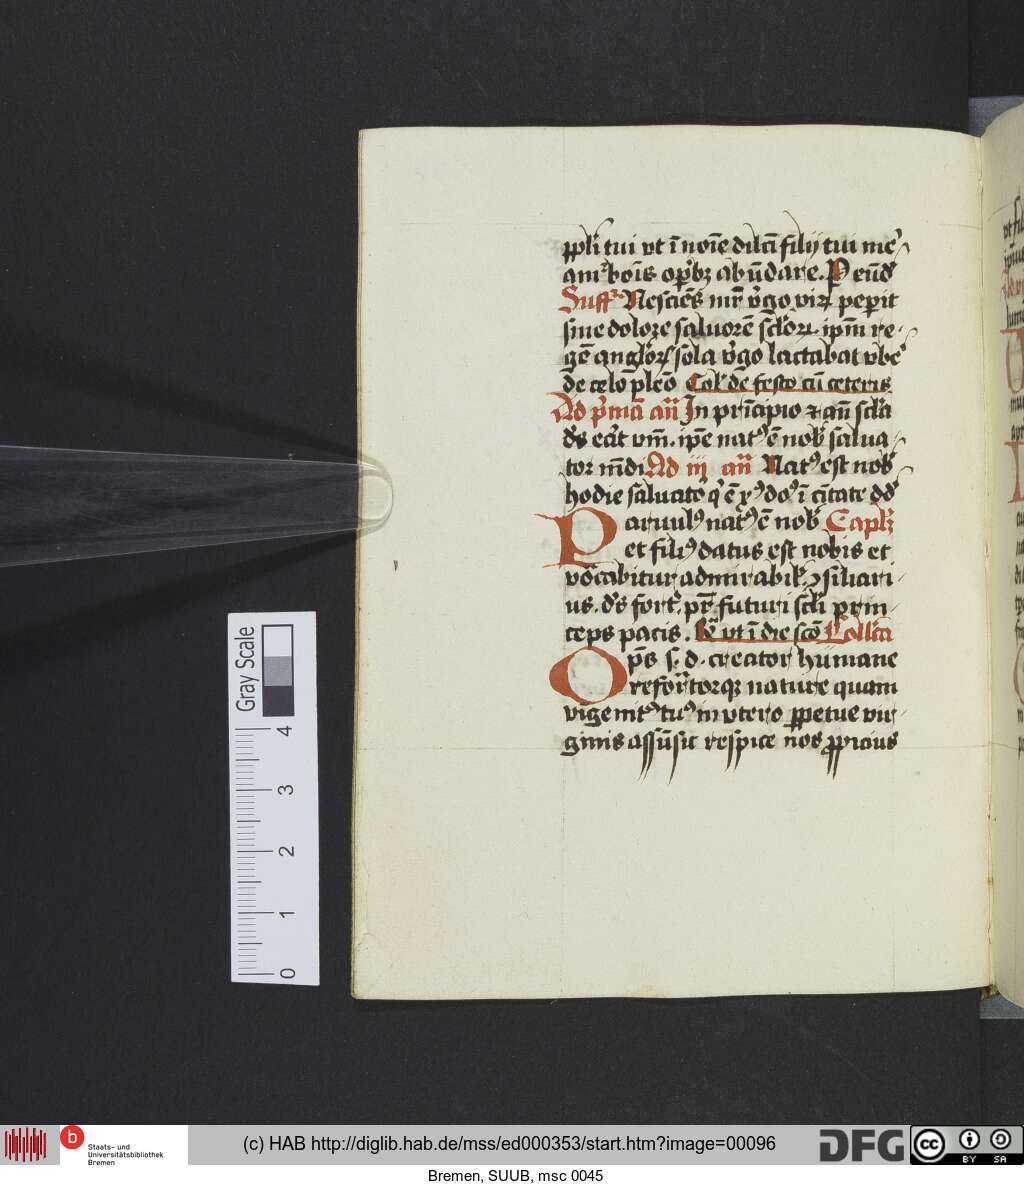 ppl̄i tui vt ī noīe dilc̄i filij tui me
am᷑ boīs opibꝫ abūdare. P eūd᷑
Suff᷑ Nesciēs mr̄ v̄go viꝝ pep̄it
sine dolore saluorē sc̄l'oꝝ ipm̄ re
gē angl'oꝝ sola v̄go lactabat vbe
de celo pleō Col' de festo cū ceteris
Ad p̄mā an̄ In prīcipio ⁊ an̄ scl̄a
ds̄ vm̄. ipe nat᷒ ē nob᷑ salua
tor mūdi Ad iij an̄ Nat᷒ est nob᷑
hodie saluator q' ē xp᷒ do᷒ ī cīitate dd̄
Paruul᷒ nat᷒ ē nob᷑ Capl'
et fili᷒ datus est nobis et
vocabitur admirabil' ꝯsiliari
us. ds̄ fort᷑. pr̄ futuri scl̄i prin
ceps pacis. vt ī die scō Coll'ca
Op̄s s. d. creator humane
reform̄torqꝫ nature quam
vigenit᷒ tu᷒ in vtero ꝑpetue vir
ginis assūsit respice nos ꝓpicius
Gray Scale
4
3
2
1
0
b
Staats- und
Universitätsbibliothek
Bremen
(c) HAB http://diglib.hab.de/mss/ed000353/start.htm?image=00096
DFG
cc
BY SA
Bremen, SUUB, msc 0045